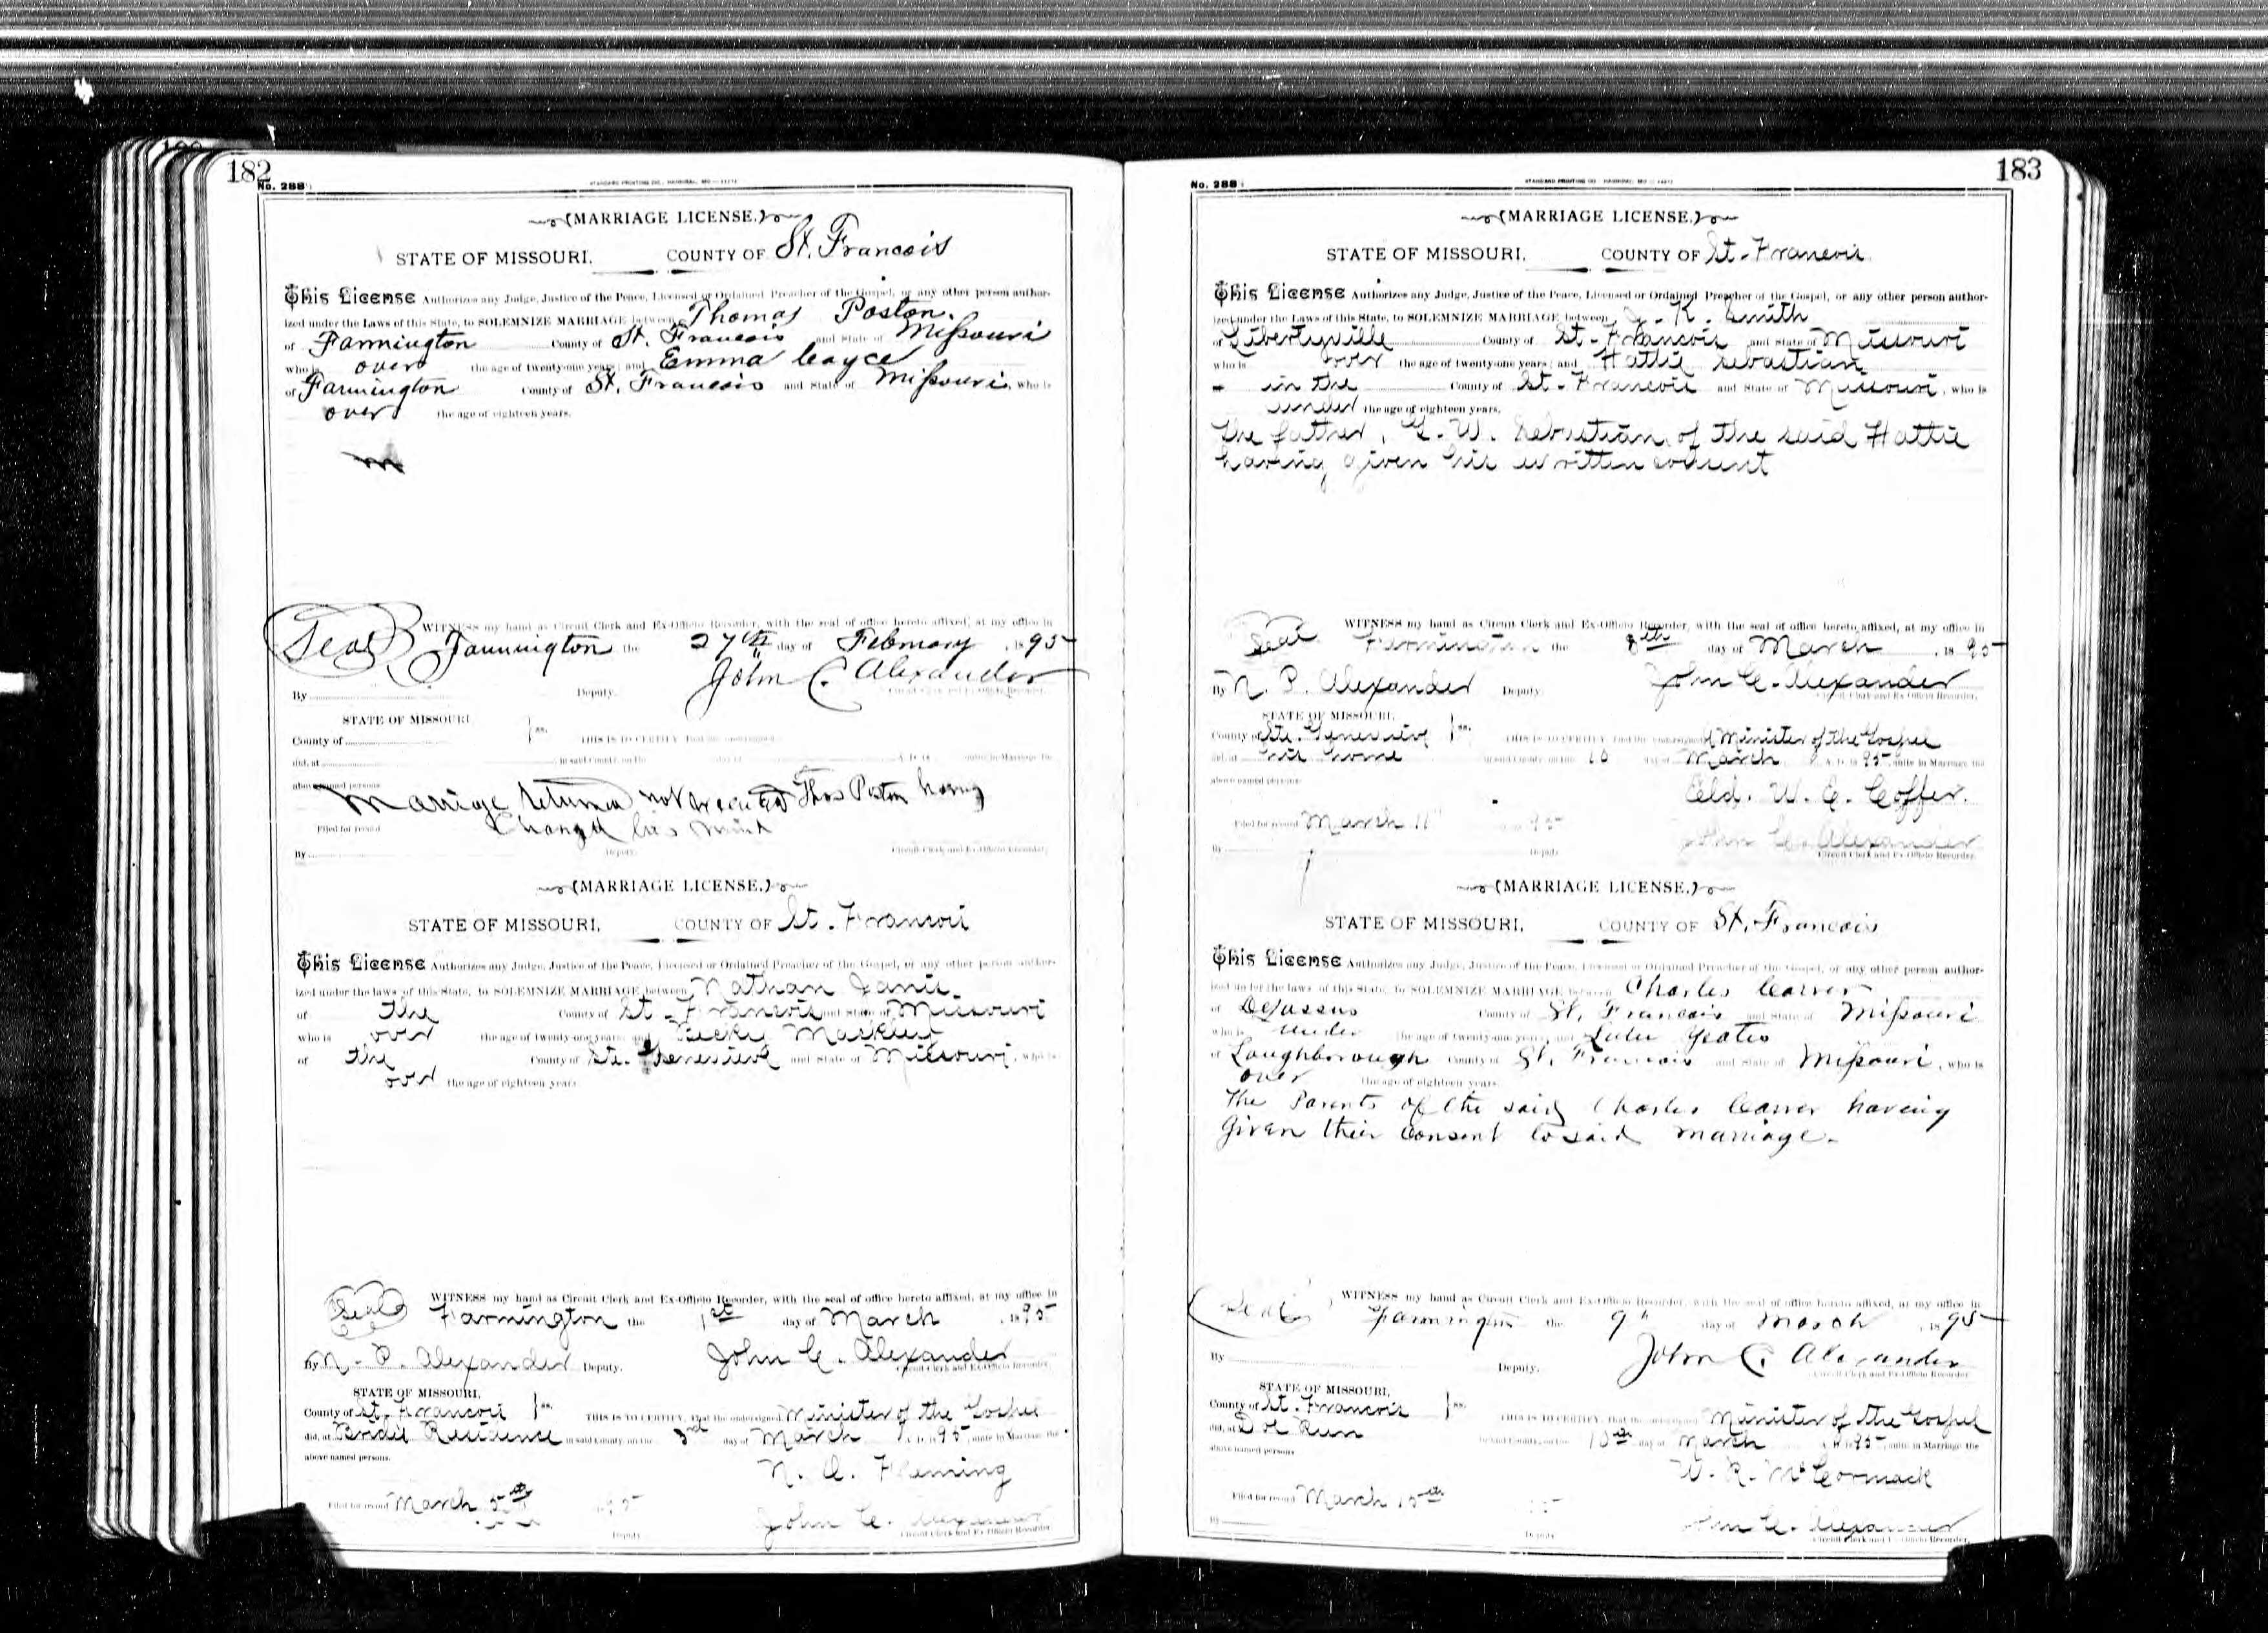 182
No. 288
(MARRIAGE LICENSE.)
STATE OF MISSOURI, COUNTY OF St. Francois
This License Authorizes any Judge, Justice of the Peace, Licensed or Ordained Preacher of the Gospel, or any other person author-
ized under the Laws of this State, to SOLEMNIZE MARRIAGE between Thomas Poston.
of Farmington County of St. Francois and State of Missouri
who is over the age of twenty-one years; and Emma Cayce
of Farmington County of St. Francois and State of Missouri, who is
over the age of eighteen years.
Seal WITNESS my hand as Circuit Clerk and Ex-Officio Recorder, with the seal of office hereto affixed, at my office in
Farmington the 27th day of February, 1895
John C. Alexander
By Deputy.
STATE OF MISSOURI,
County of ss. THIS IS TO CERTIFY, That the undersigned
did, at in said County, on the day of A. D. 18 unite in Marriage the
above named persons
Marriage returned not executed Thos Poston having
Changed his mind
Filed for record
By Deputy. Circuit Clerk and Ex-Officio Recorder.
(MARRIAGE LICENSE.)
STATE OF MISSOURI, COUNTY OF St. Francois
This License Authorizes any Judge, Justice of the Peace, Licensed or Ordained Preacher of the Gospel, or any other person author-
ized under the laws of this State, to SOLEMNIZE MARRIAGE between Nathan Janis
of the County of St. Francois and State of Missouri
who is over the age of twenty-one years; and Mackley
of the County of Ste. Genevieve and State of Missouri, who is
over the age of eighteen years
Seal WITNESS my hand as Circuit Clerk and Ex-Officio Recorder, with the seal of office hereto affixed, at my office in
Farmington the 1st day of March, 1895
By N. P. Alexander Deputy. John C. Alexander
Circuit Clerk and Ex-Officio Recorder
STATE OF MISSOURI,
County of St. Francois ss. THIS IS TO CERTIFY, That the undersigned Minister of the Gospel
did, at Brides Residence in said County, on the 3rd day of March A. D. 1895, unite in Marriage the
above named persons.
N. A. Fleming
Filed for record March 5th 1895
John C. Alexander
Deputy Circuit Clerk and Ex-Officio Recorder
183
No. 288
STANDARD PRINTING CO., HANNIBAL, MO
(MARRIAGE LICENSE.)
STATE OF MISSOURI, COUNTY OF St. Francois
This License Authorizes any Judge, Justice of the Peace, Licensed or Ordained Preacher of the Gospel, or any other person author-
ized under the Laws of this State, to SOLEMNIZE MARRIAGE between J. K. Smith
of Libertyville County of St. Francois and State of Missouri
who is over the age of twenty-one years; and Hattie Sebastian
in the County of St. Francois and State of Missouri, who is
under the age of eighteen years.
The father, G. W. Sebastian, of the said Hattie
having given his written consent
Seal WITNESS my hand as Circuit Clerk and Ex-Officio Recorder, with the seal of office hereto affixed, at my office in
Farmington the 8th day of March, 1895
By N. P. Alexander Deputy. John C. Alexander
Circuit Clerk and Ex-Officio Recorder.
STATE OF MISSOURI,
County of Ste. Genevieve ss. THIS IS TO CERTIFY, That the undersigned Minister of the Gospel
did, at his home in said County, on the 10 day of March A. D. 1895, unite in Marriage the
above named persons
Eld. W. E. Coffer.
Filed for record March 11 1895
John C. Alexander
By Deputy Circuit Clerk and Ex-Officio Recorder.
(MARRIAGE LICENSE.)
STATE OF MISSOURI, COUNTY OF St. Francois
This License Authorizes any Judge, Justice of the Peace, Licensed or Ordained Preacher of the Gospel, or any other person author-
ized under the laws of this State, to SOLEMNIZE MARRIAGE between Charles Carver
of DeLassus County of St. Francois and State of Missouri
who is under the age of twenty-one years; and Lulu Yeates
of Loughborough County of St. Francois and State of Missouri, who is
over the age of eighteen years.
The Parents of the said Charles Carver having
given their consent to said marriage.
Seal WITNESS my hand as Circuit Clerk and Ex-Officio Recorder, with the seal of office hereto affixed, at my office in
Farmington the 9" day of March, 1895
By Deputy. John C. Alexander
Circuit Clerk and Ex-Officio Recorder
STATE OF MISSOURI,
County of St. Francois ss. THIS IS TO CERTIFY, That the undersigned Minister of the Gospel
did, at Doe Run in said County, on the 10th day of March A. D. 1895, unite in Marriage the
above named persons
W. R. McCormack
Filed for record March 15th
John C. Alexander
By Deputy Circuit Clerk and Ex-Officio Recorder.